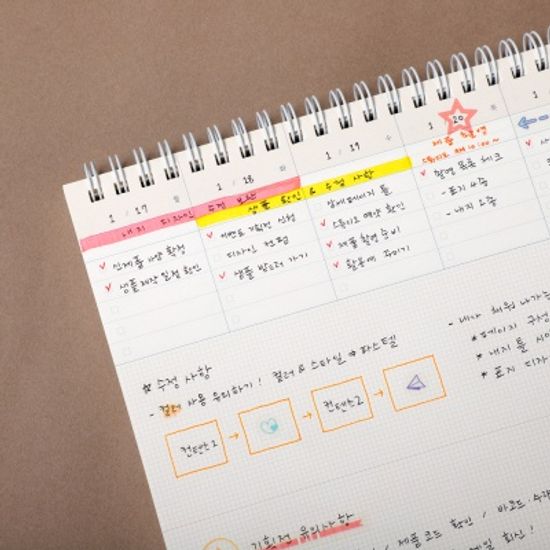 1 / 17
1 / 18
1 / 19
1 20
내지 디자인 수정 보완
샘플 확인 & 수정 사항
제품 촬영
스튜디오 AM 10:00~
신제품 사양 확정
샘플 제작 일정 확인
이벤트 기획전 신청
디자인 컨펌
샘플 받으러 가기
상세페이지 틀
스튜디오 예약 확인
제품 촬영 준비
활용예 꾸미기
촬영 목록 체크
- 표지 4종
- 내지 2종
※ 수정 사항
- 컬러 사용 유의하기! 컬러 & 스타일 → 파스텔
컨텐츠1 → → 컨텐츠2 →
- 내가 채워 나가는
* 페이지 구성
* 내지 틀 사이
* 표지 디자
기획전 유의사항
/ 제품코드 확인 / 바코드·수량
확인!